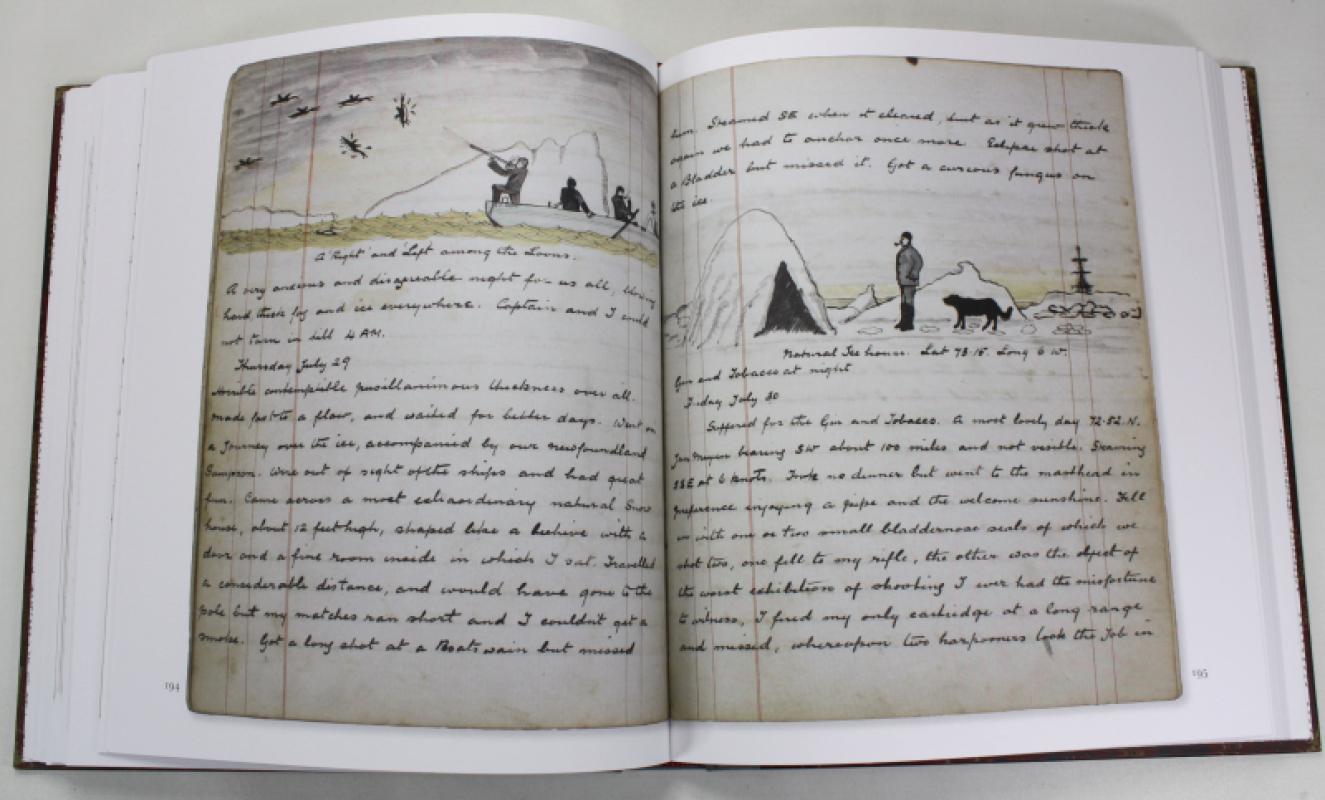 A 'Right' and 'Left' among the Loons.
A very anxious and disagreable night for us all, blowing
hard, thick fog and ice everywhere. Captain and I could
not turn in till 4 AM.
Thursday July 29
Horrible contemptible pusillanimous thickness over all.
Made fast to a flaw, and waited for better days. Went on
a journey over the ice, accompanied by our newfoundland
Sampson. Were out of sight of the ships and had great
fun. Came across a most extraordinary natural Snow
house, about 12 feet high, shaped like a beehive with a
door and a fine room inside in which I sat. Travelled
a considerable distance, and would have gone to the
pole but my matches ran short and I couldn't get a
smoke. Got a long shot at a Boatswain but missed
194
him. Steamed SE when it cleared, but as it grew thick
again we had to anchor once more. Eclipse shot at
a Bladder but missed it. Got a curious fungus on
the ice.
Natural Ice house. Lat 73.15. Long 6 W.
Gin and Tobacco at night
Friday July 30
Suffered for the Gin and Tobacco. A most lovely day 72.52.N.
Jan Meyen bearing SW about 100 miles and not visible. Steaming
SSE at 6 knots. Took no dinner but went to the masthead in
preference enjoying a pipe and the welcome sunshine. Fell
in with one or two small bladdernose seals of which we
shot two, one fell to my rifle, the other was the object of
the worst exhibition of shooting I ever had the misfortune
to witness, I fired my only cartridge at a long range
and missed, whereupon two harpooners took the Job in
195